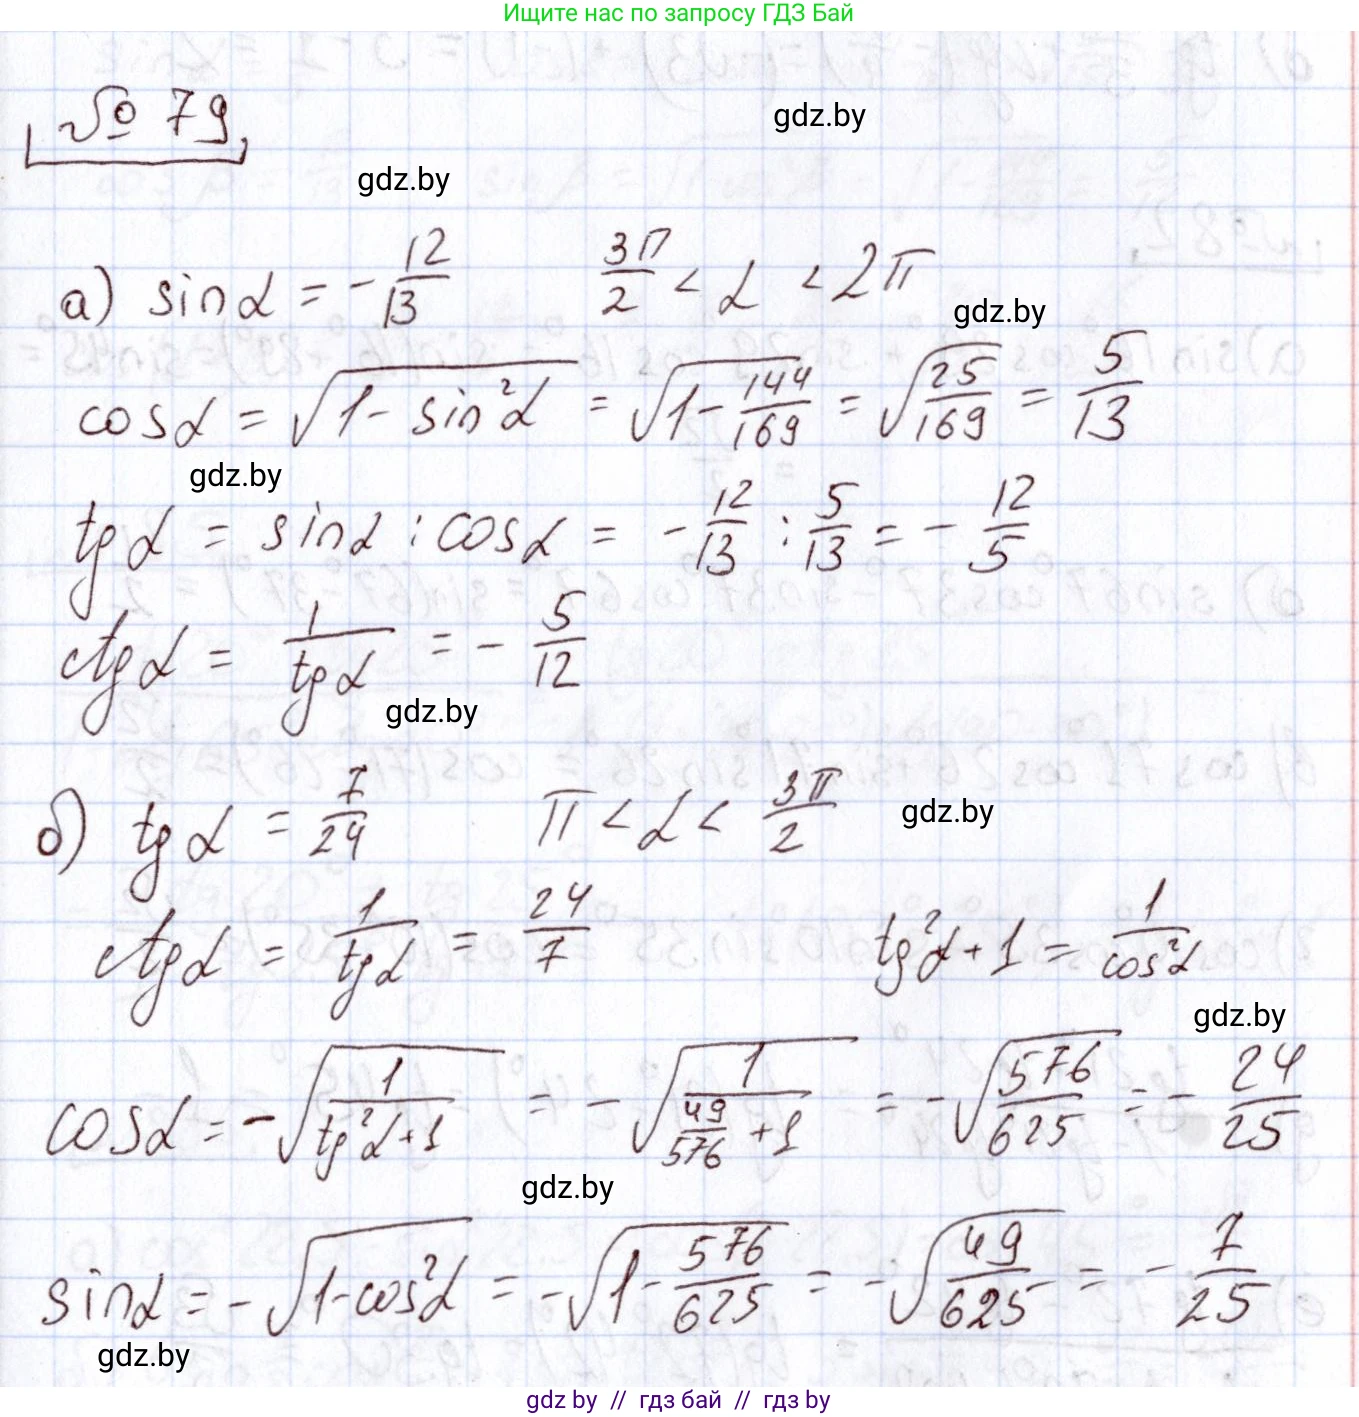 Ищите нас по запросу ГДЗ Бай
№ 79
gdz.by
gdz.by
а) sin α = - 12/13   3π/2 < α < 2π
gdz.by
cos α = √(1 - sin²α) = √(1 - 144/169) = √(25/169) = 5/13
gdz.by
tg α = sin α : cos α = - 12/13 : 5/13 = - 12/5
ctg α = 1/tg α = - 5/12
gdz.by
б) tg α = 7/24   π < α < 3π/2
gdz.by
ctg α = 1/tg α = 24/7   tg²α + 1 = 1/cos²α
gdz.by
cos α = -√(1/(tg²α + 1)) = -√(1/(49/576 + 1)) = -√(576/625) = - 24/25
gdz.by
sin α = -√(1 - cos²α) = -√(1 - 576/625) = -√(49/625) = - 7/25
gdz.by
gdz by // гдз бай // гдз by